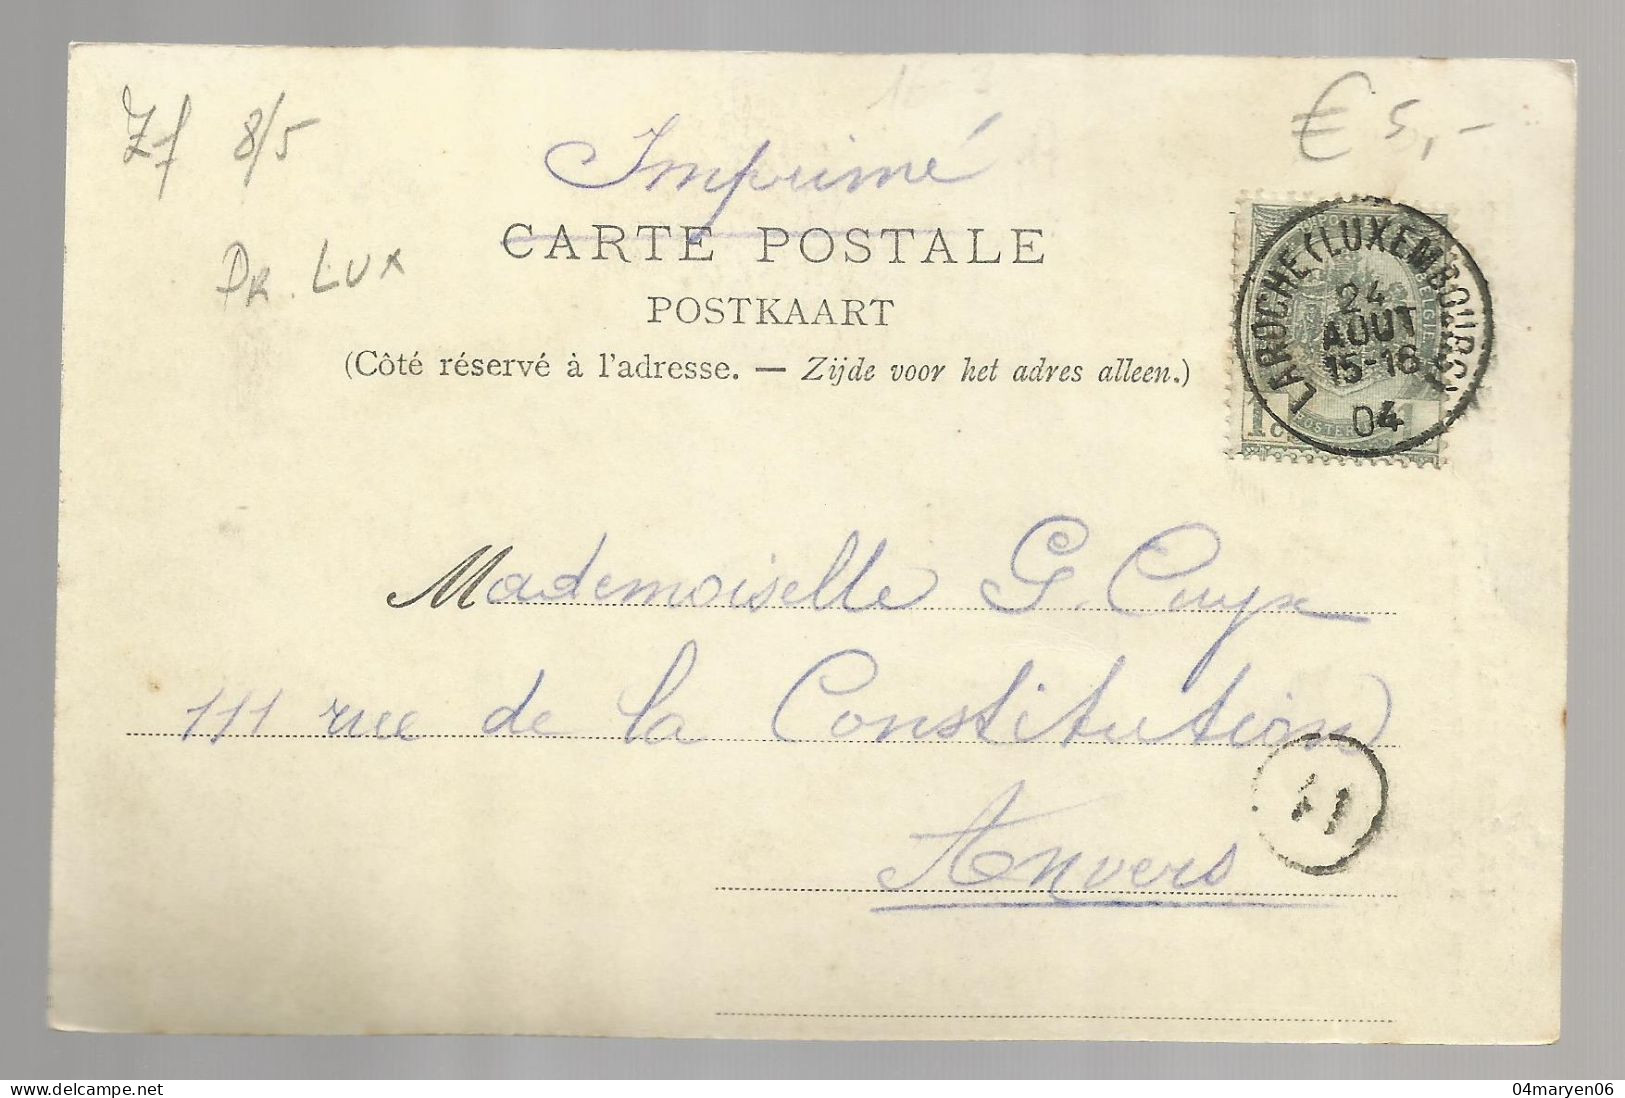 Zf 8/5
€ 5,-
Imprimé
CARTE POSTALE
Pr. Lux
POSTKAART
(Côté réservé à l'adresse. — Zijde voor het adres alleen.)
LAROCHE (LUXEMBOURG)
24
AOUT
15-16
04
1c 1
Mademoiselle G. Cuyx
111 rue de la Constitution
11
Anvers
https://www.delcampe.net
04maryen06